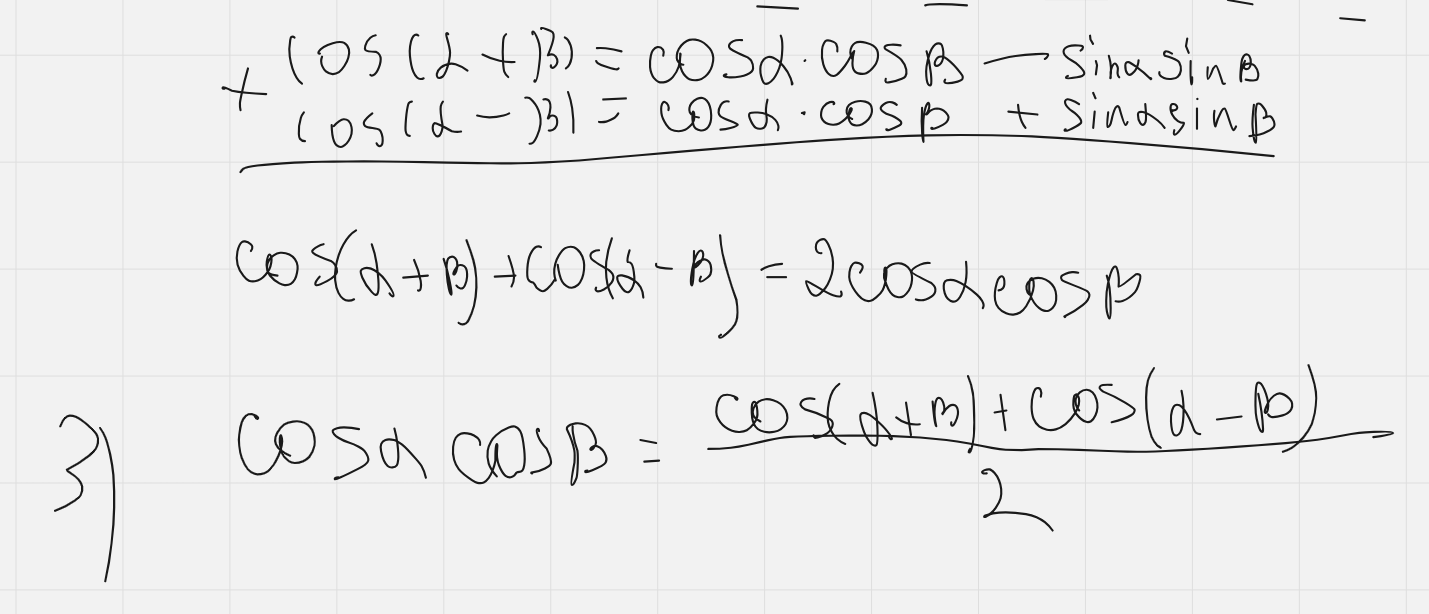 + cos(α+β) = cosα·cosβ — sinαsinβ
cos(α-β) = cosα·cosβ + sinαsinβ
cos(α+β)+cos(α-β) = 2cosαcosβ
3) cosαcosβ = (cos(α+β)+cos(α-β))/2